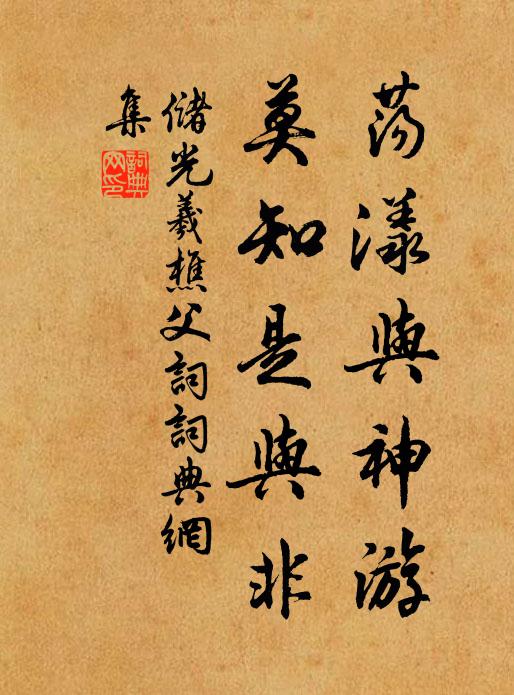 荡漾與神游
莫知是與非
儲光羲樵父詞詞典網
集
詞典網印